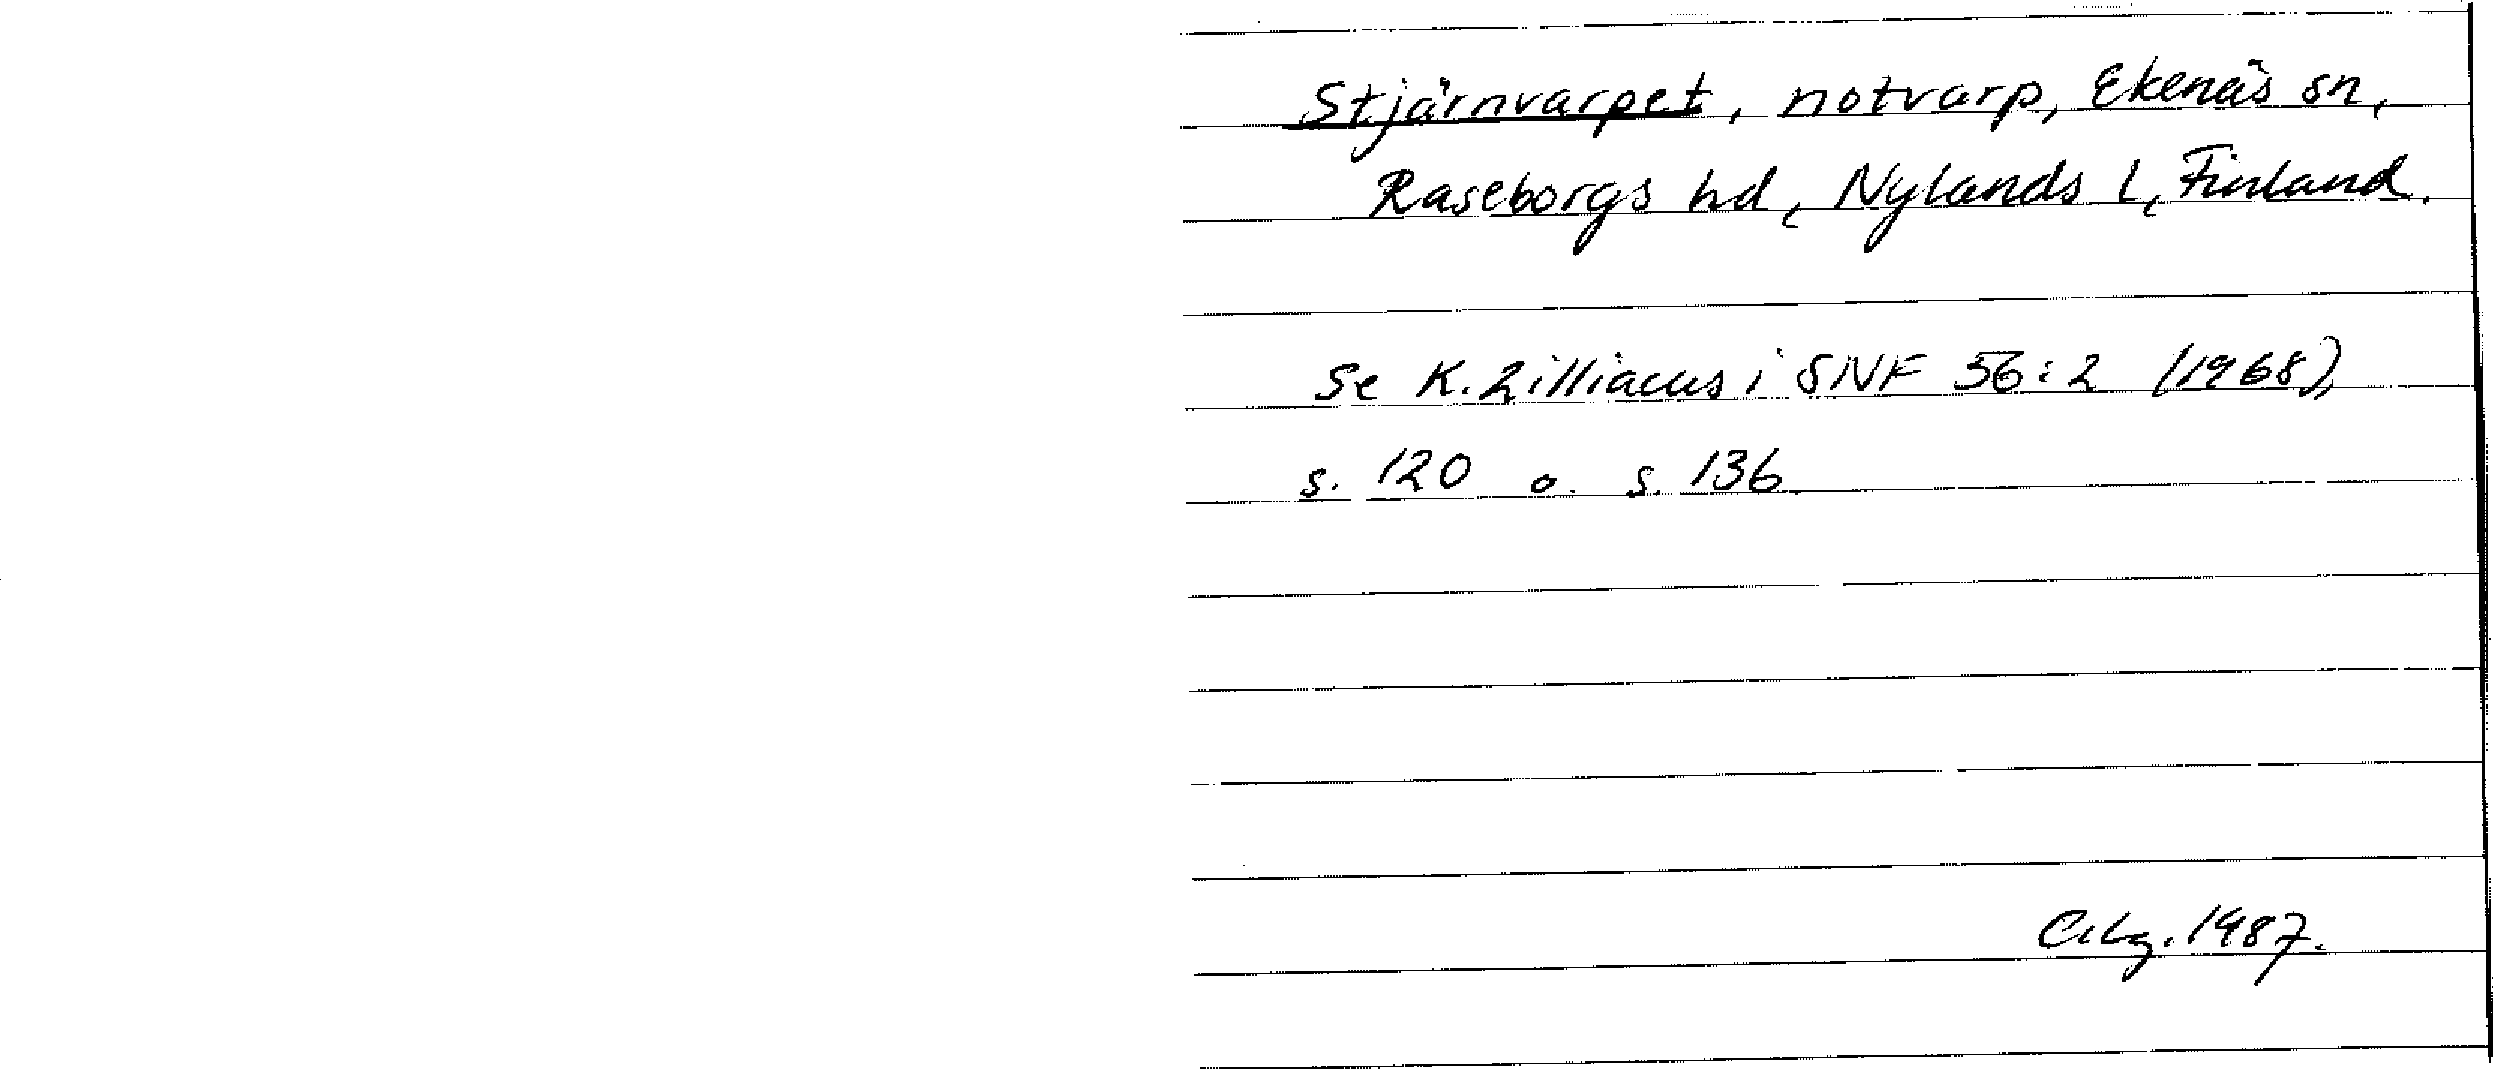 Stjärnvarpet, notvarp, Ekenäs sn,
Raseborgs hd, Nylands l, Finland.
Se K. Zilliacus i SNF 56:2 (1968),
s. 120 o. s. 136.
1987.